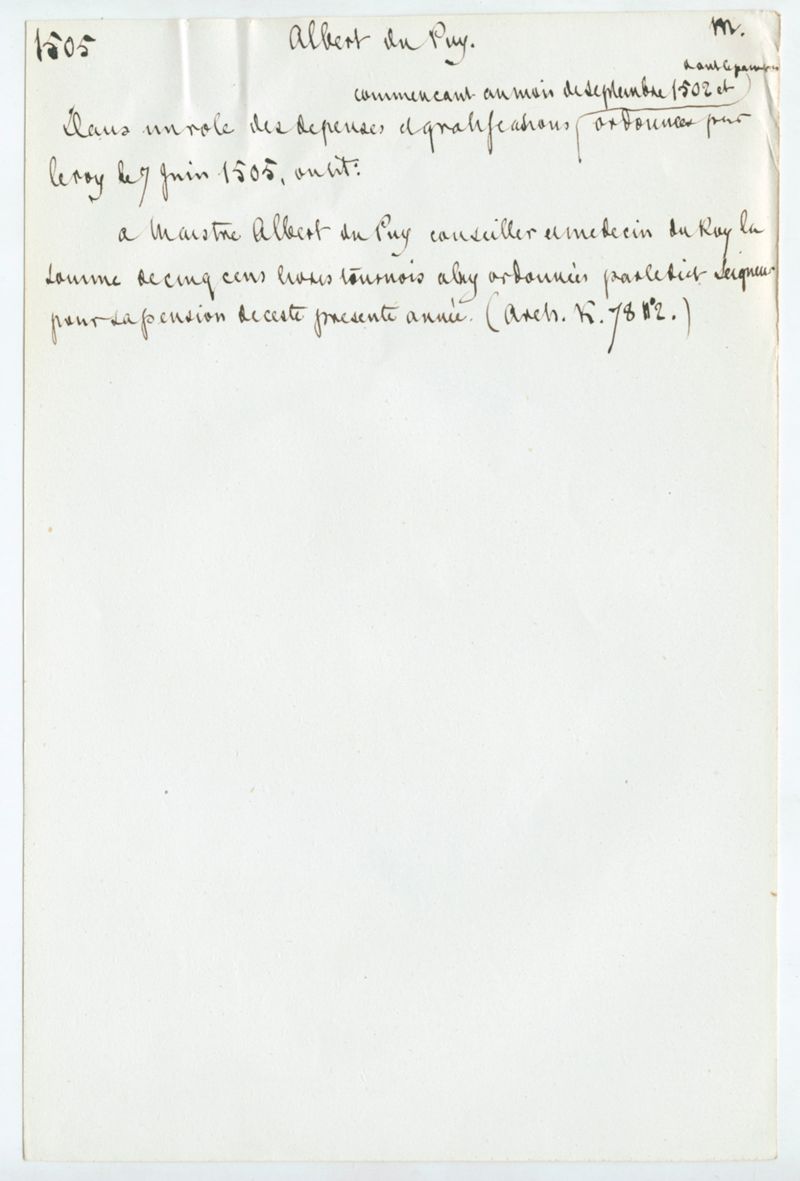 1505 Albert du Puy. M.
dont le
commencant au mois de septembre 1502 et
Dans un role des depenses et gratifications ordonnees par
le roy le 7 Juin 1505, on lit:
a Maistre Albert du Puy conseiller et medecin du Roy la
somme de cinq cens livres tournois a luy ordonnées par le dict Seigneur
pour sa pension de ceste presente année. (Arch. K. 78 no 2.)